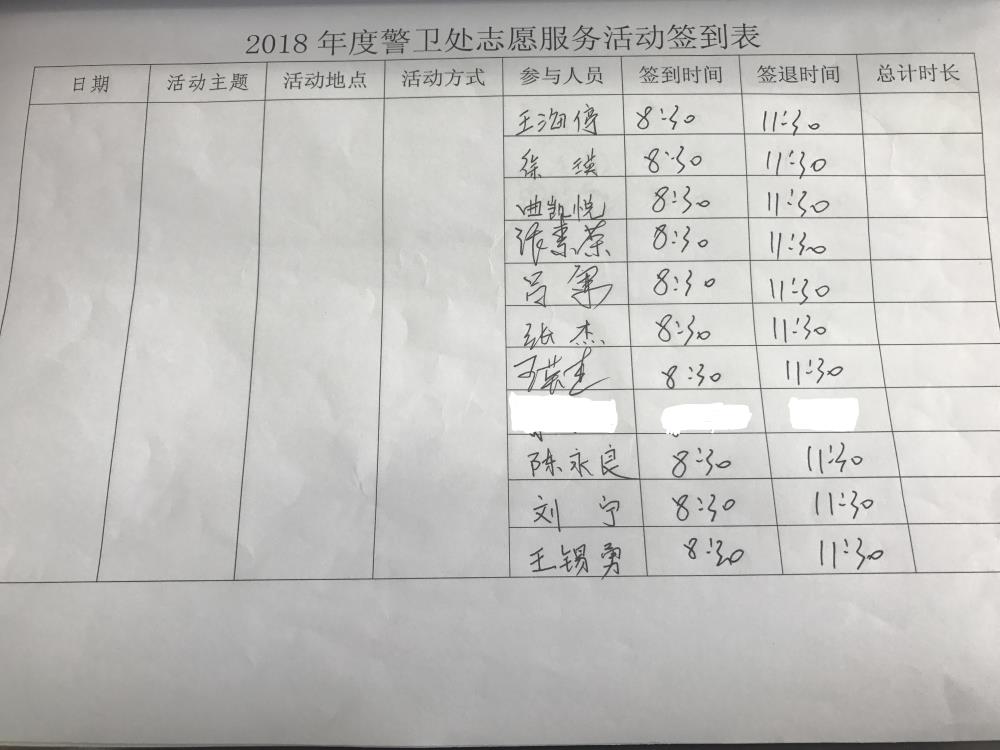 2018 年度警卫处志愿服务活动签到表
日期 活动主题 活动地点 活动方式 参与人员 签到时间 签退时间 总计时长
王海停 8:30 11:30
徐 瑛 8:30 11:30
曲凯悦 8:30 11:30
张素荣 8:30 11:30
吕军 8:30 11:30
张杰 8:30 11:30
8:30 11:30
陈永良 8:30 11:30
刘宁 8:30 11:30
王锡勇 8:30 11:30